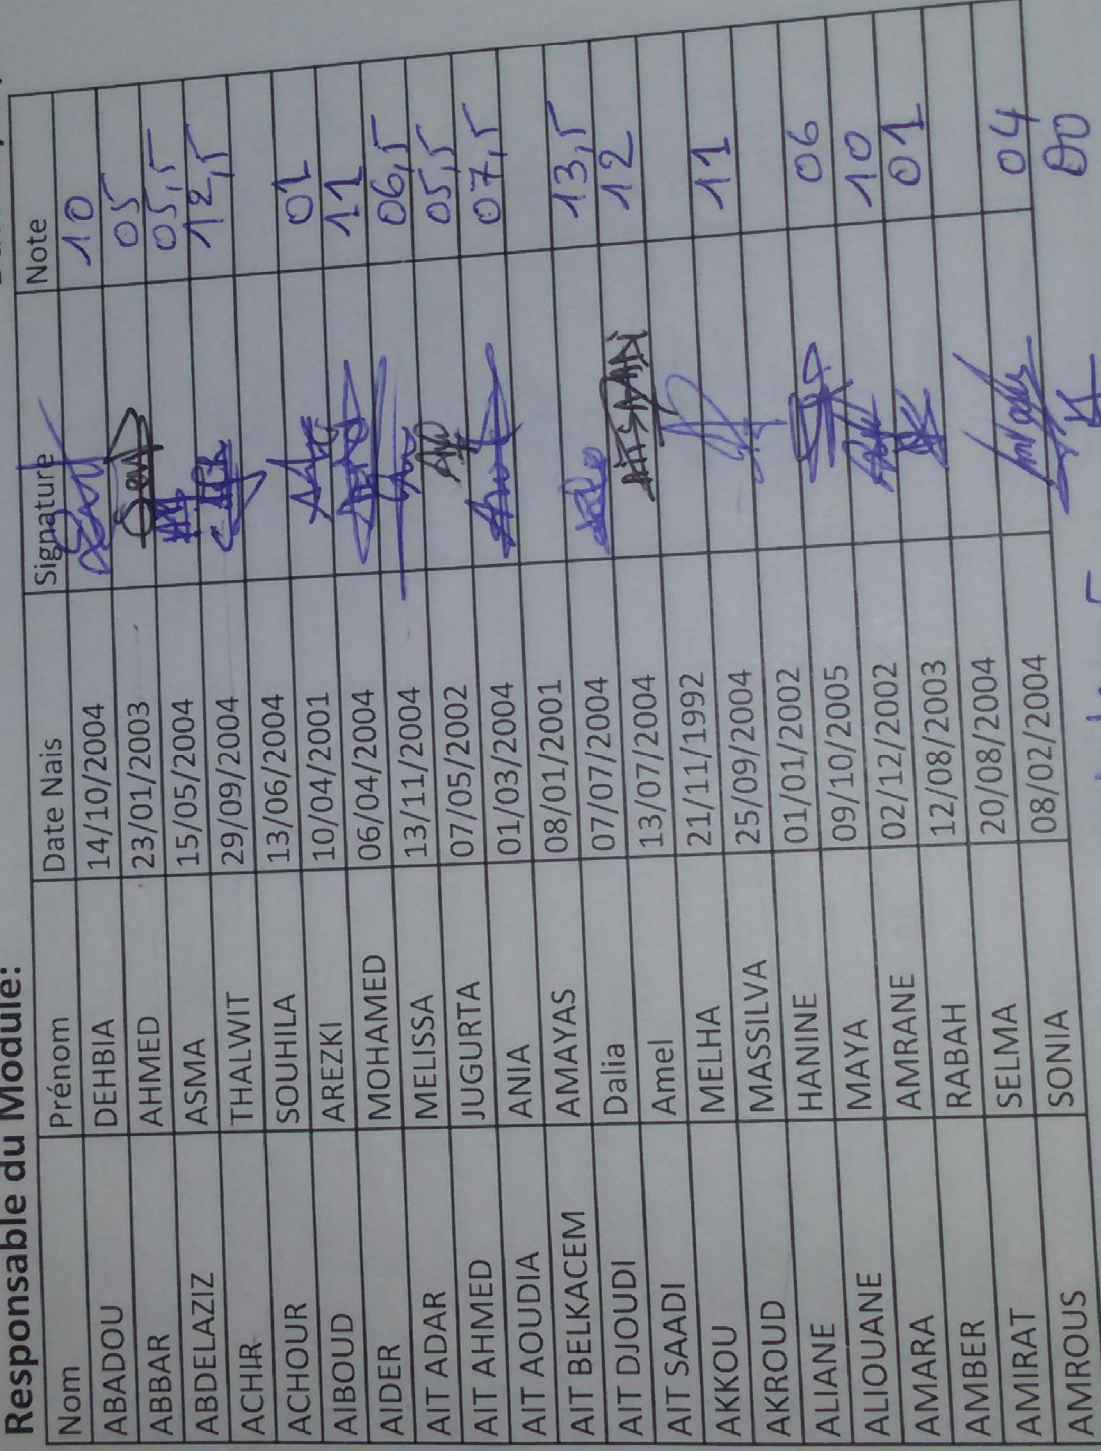 Responsable du Module:
Nom Prénom Date Nais Signature Note
ABADOU DEHBIA 14/10/2004 10
ABBAR AHMED 23/01/2003 05
ABDELAZIZ ASMA 15/05/2004 05,5
ACHIR THALWIT 29/09/2004 12,5
ACHOUR SOUHILA 13/06/2004
AIBOUD AREZKI 10/04/2001 01
AIDER MOHAMED 06/04/2004 11
AIT ADAR MELISSA 13/11/2004 06,5
AIT AHMED JUGURTA 07/05/2002 05,5
AIT AOUDIA ANIA 01/03/2004 07,5
AIT BELKACEM AMAYAS 08/01/2001
AIT DJOUDI Dalia 07/07/2004 13,5
AIT SAADI Amel 13/07/2004 AIT SAADI 12
AKKOU MELHA 21/11/1992
AKROUD MASSILVA 25/09/2004 11
ALIANE HANINE 01/01/2002
ALIOUANE MAYA 09/10/2005 06
AMARA AMRANE 02/12/2002 10
AMBER RABAH 12/08/2003 01
AMIRAT SELMA 20/08/2004
AMROUS SONIA 08/02/2004 04
00